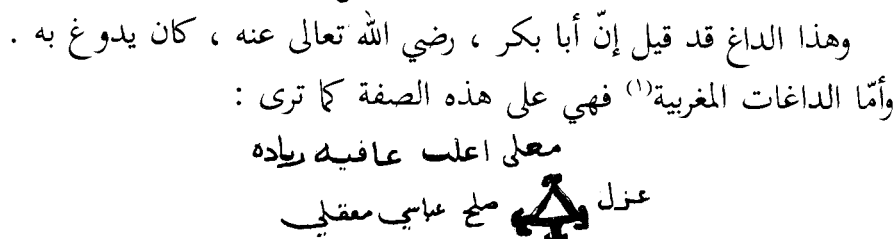 وهذا الداغ قد قيل إنّ أبا بكر ، رضي الله تعالى عنه ، كان يدوغ به .
وأمّا الداغات المغربية(١) فهي على هذه الصفة كما ترى :
معلى اعلت عافيه زياده
عزل صلح عباسي معقلي